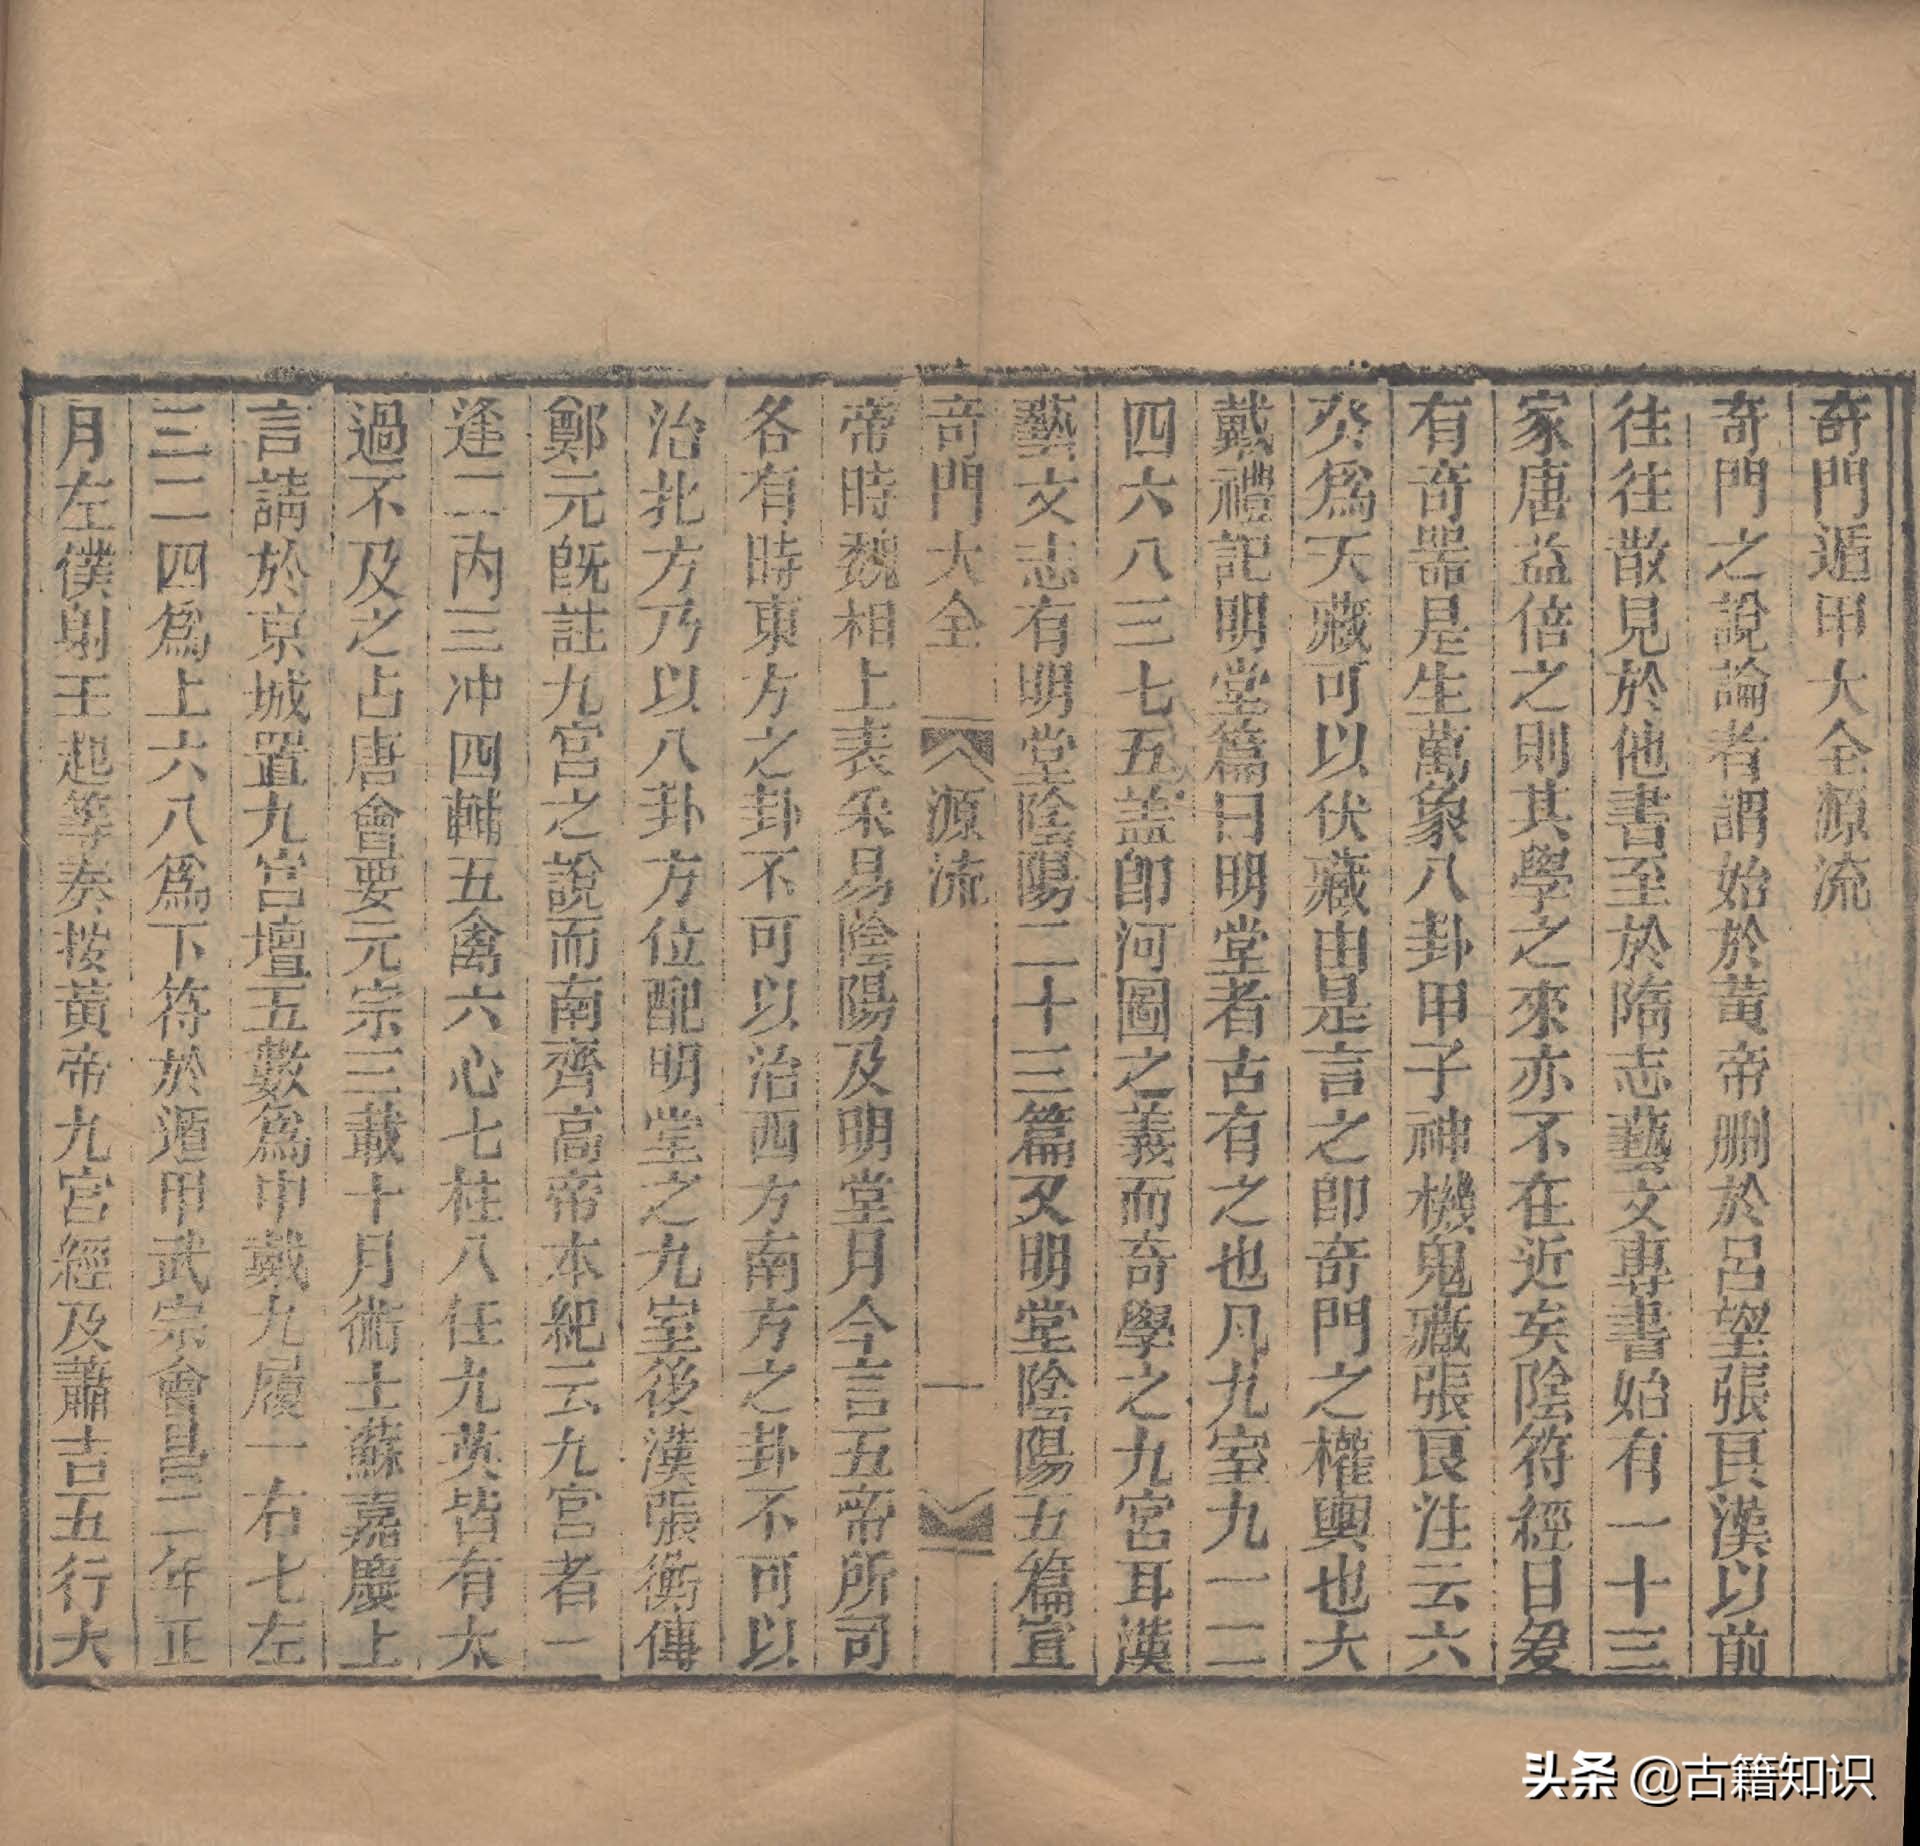 奇門遁甲大全源流
奇門之說論者謂始於黃帝刪於呂望張良漢以前
往往散見於他書至於隋志藝文專書始有一十三
家唐益倍之則其學之來亦不在近矣陰符經曰爰
有奇器是生萬象八卦甲子神機鬼藏張良注云六
癸爲天藏可以伏藏由是言之卽奇門之權輿也大
戴禮記明堂篇曰明堂者古有之也凡九室九一二
四六八三七五蓋卽河圖之義而奇學之九宮耳漢
藝文志有明堂陰陽二十三篇又明堂陰陽五篇宣
奇門大全 源流 一
帝時魏相上表采易陰陽及明堂月令言五帝所司
各有時東方之卦不可以治西方南方之卦不可以
治北方乃以八卦方位配明堂之九室後漢張衡傳
鄭元旣註九宮之說而南齊高帝本紀云九宮者一
逢二內三冲四輔五禽六心七柱八任九英皆有太
過不及之占唐會要元宗三載十月術士蘇嘉慶上
言請於京城置九宮壇五數爲中戴九履一右七左
三二四爲上六八爲下符於遁甲武宗會昌二年正
月左僕射王起等奏按黃帝九宮經及蕭吉五行大
头条 @古籍知识